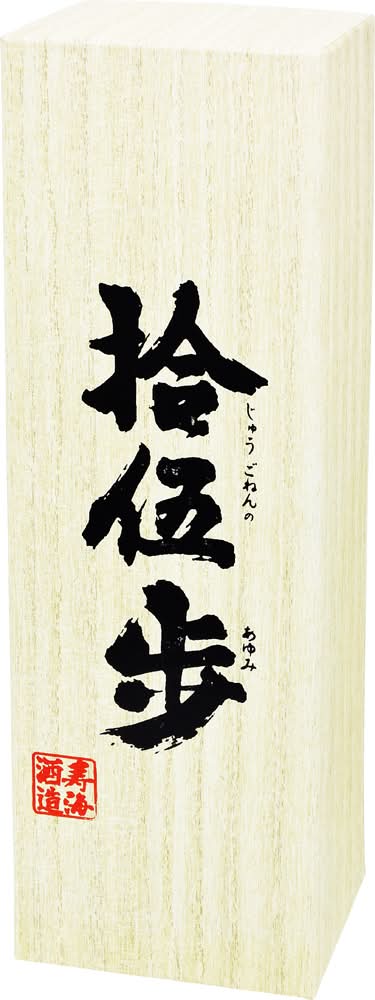 拾伍歩
じゅうごねんの
あゆみ
寿海
酒造